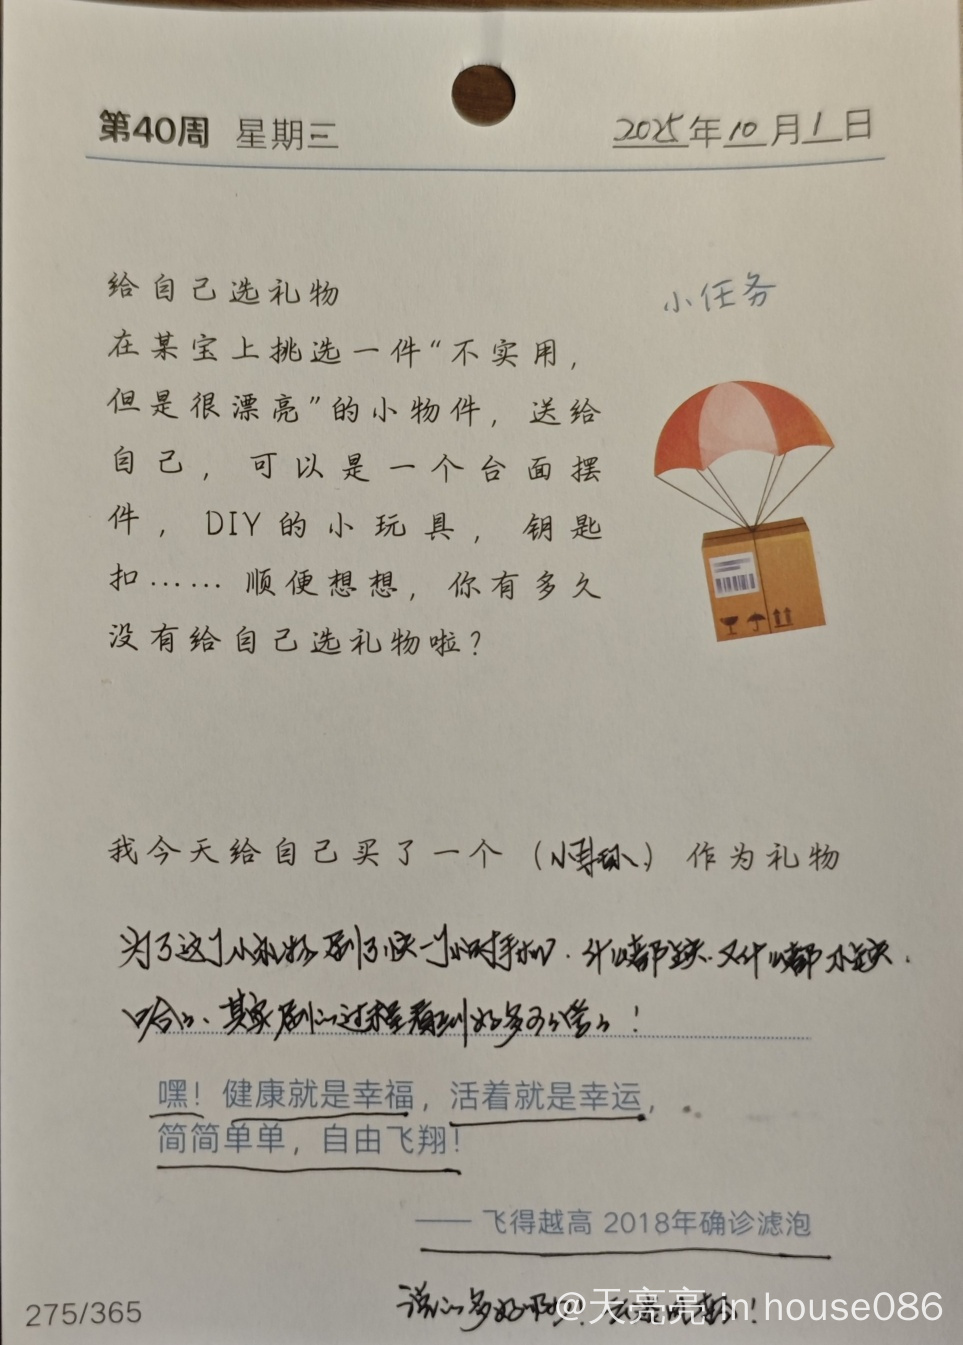 第40周 星期三 2025年10月1日
给自己选礼物
小任务
在某宝上挑选一件“不实用，
但是很漂亮”的小物件，送给
自己，可以是一个台面摆
件，DIY的小玩具，钥匙
扣……顺便想想，你有多久
没有给自己选礼物啦？
我今天给自己买了一个（小耳环）作为礼物
为了这个小礼物刷了快一个小时手机．什么都缺．又什么都不缺．
哈哈、其实刷的过程看到好多
嘿！健康就是幸福，活着就是幸运，
简简单单，自由飞翔！
—— 飞得越高 2018年确诊滤泡
说的多好啊！
275/365
@天亮亮 in house086